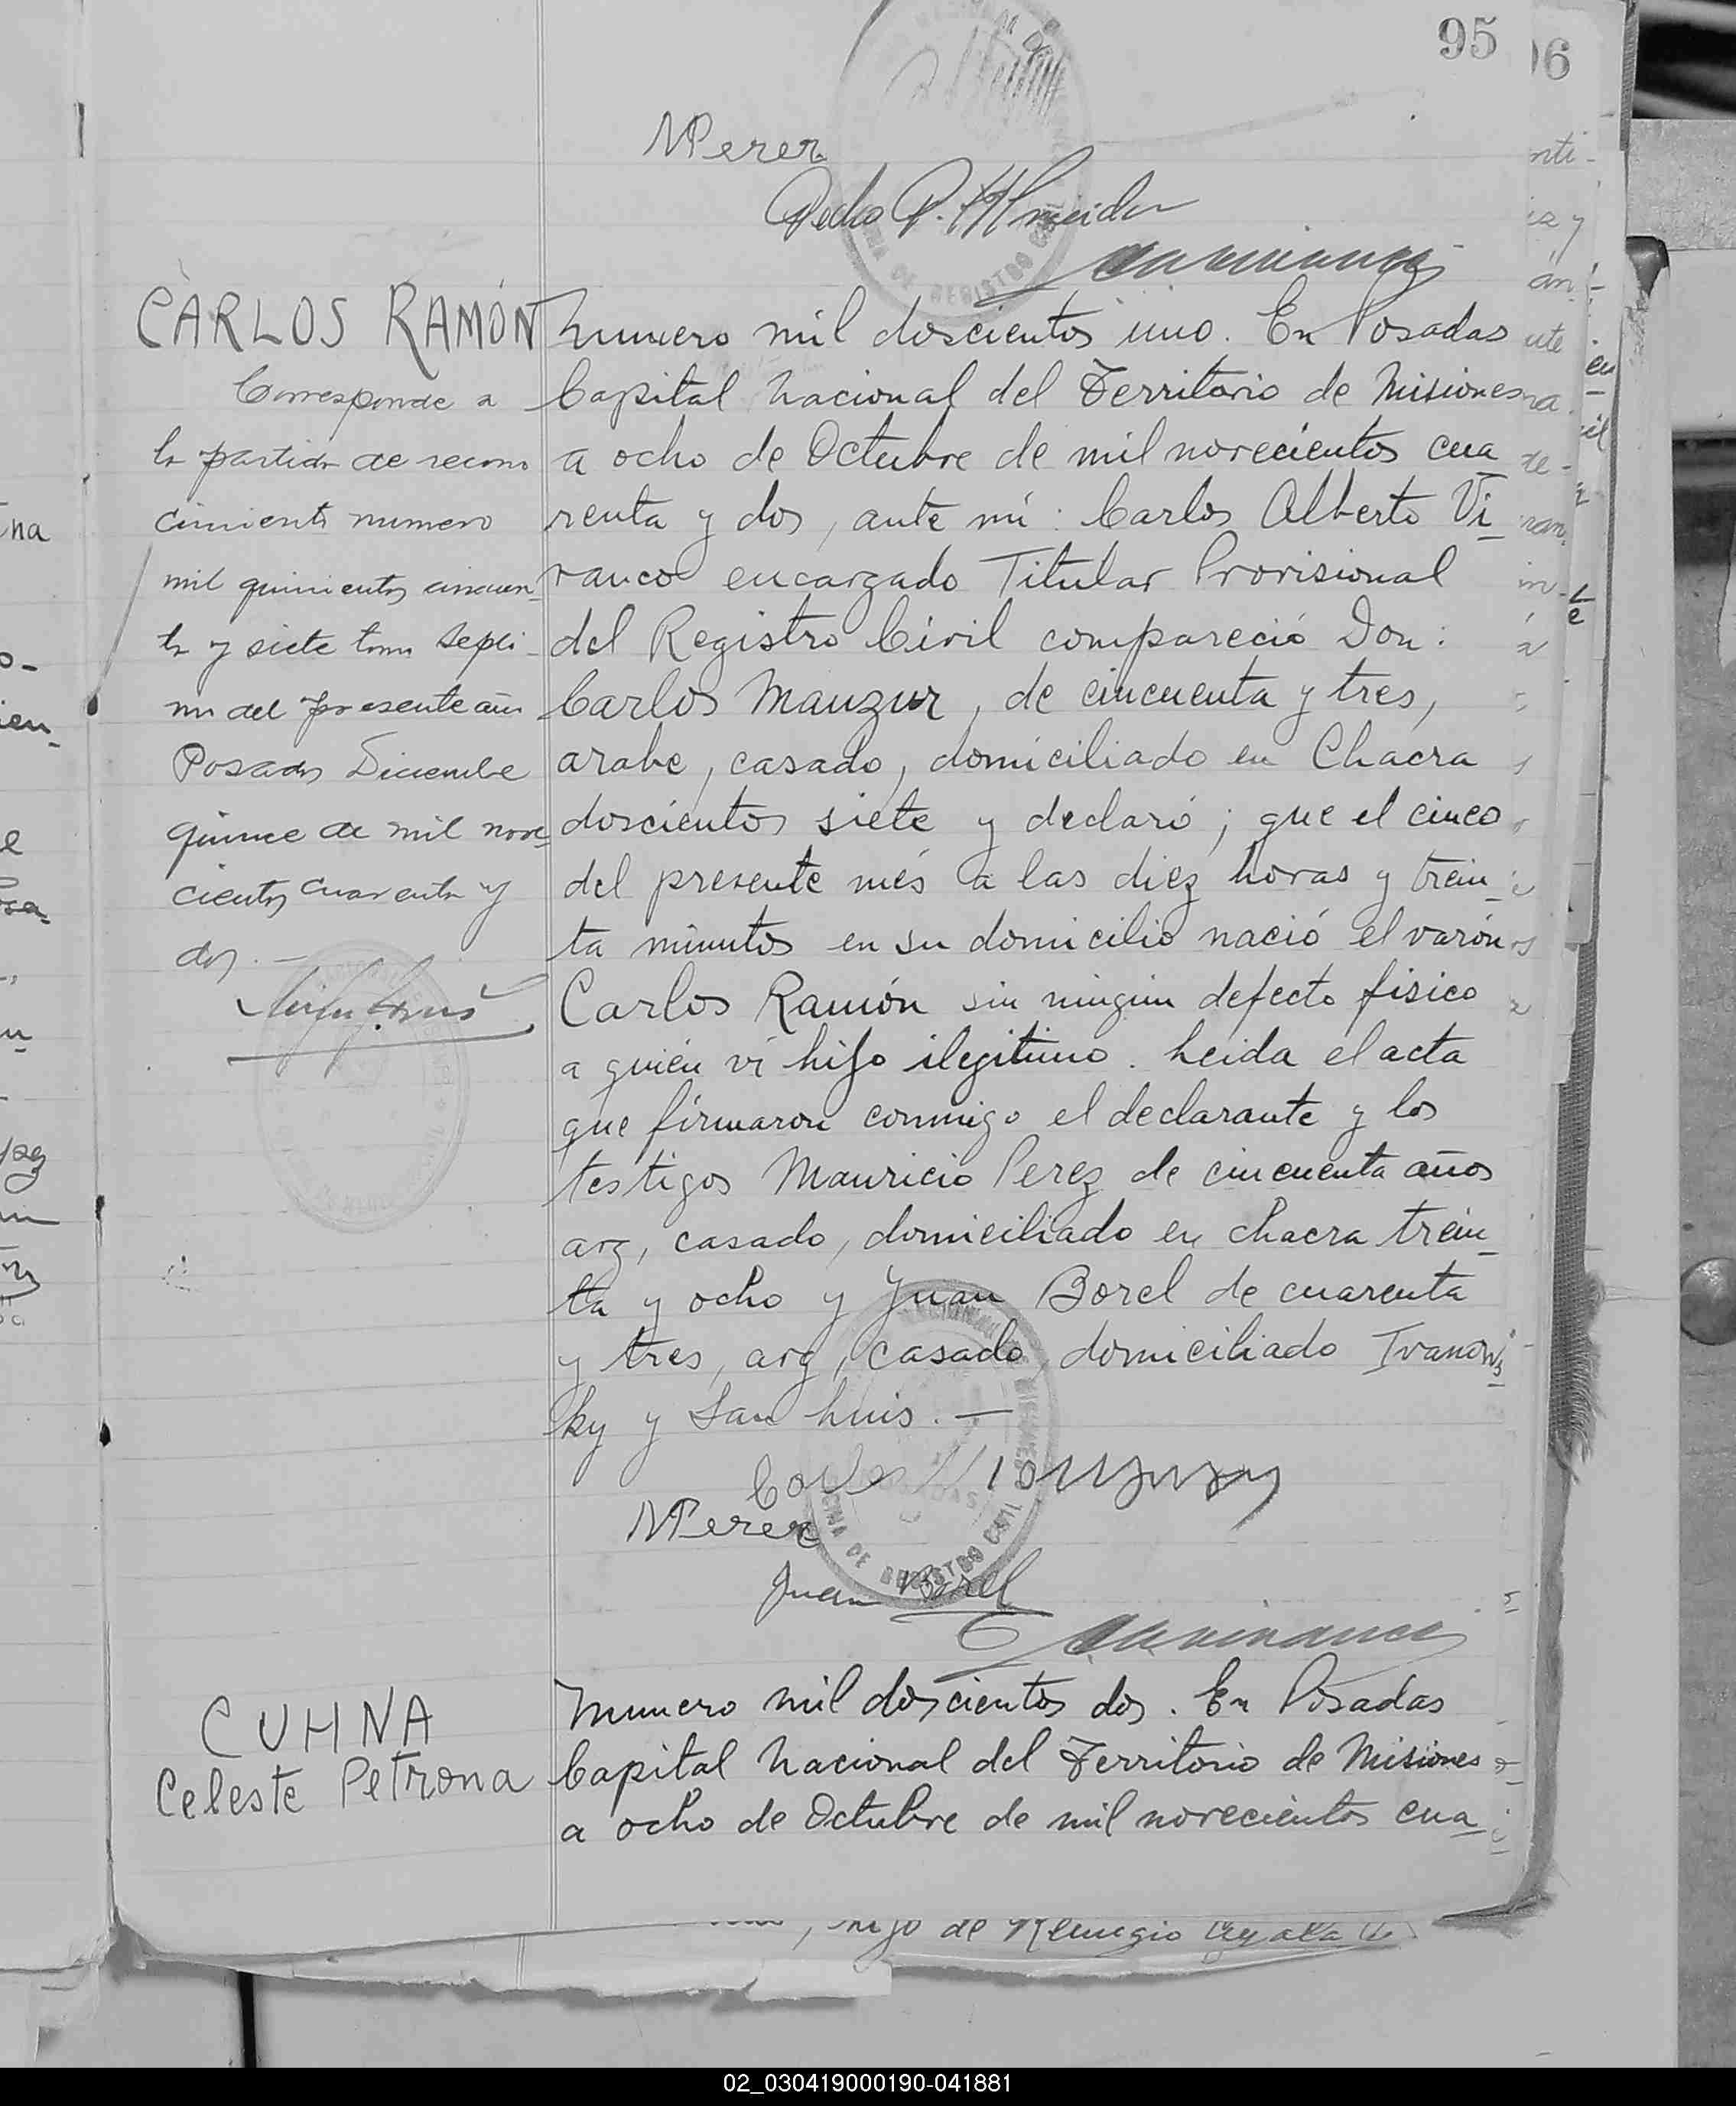 95
96
MPerez
Pedro P. Almeida
CARLOS RAMÓN
Corresponde a
la partida de recono
cimiento numero
mil quinientos cincuen
ta y siete tomo septi-
mo del presente año
Posadas Diciembre
quince de mil nove
cientos cuarenta y
dos.-
Numero mil doscientos uno. En Posadas
Capital Nacional del Territorio de Misiones
a ocho de Octubre de mil novecientos cua
renta y dos, ante mi: Carlos Alberto Vi
vanco encargado Titular Provisional
del Registro Civil compareció Don:
Carlos Manzur, de cincuenta y tres,
arabe, casado, domiciliado en Chacra
doscientos siete y declaró; que el cinco
del presente més a las diez horas y trein
ta minutos en su domicilio nació el varón
Carlos Ramón sin ningún defecto fisico
a quién ví hijo ilegitimo. Leida el acta
que firmaron conmigo el declarante y los
testigos Mauricio Perez de cincuenta años
arg, casado, domiciliado en chacra trein
ta y ocho y Juan Borel de cuarenta
y tres, arg, casado, domiciliado Ivanows
ky y San Luis.—
Carlos Manzur
MPerez
Juan Borel
OFICINA DE REGISTRO CIVIL
CUHNA
Celeste Petrona
Numero mil doscientos dos. En Posadas
Capital Nacional del Territorio de Misiones
a ocho de Octubre de mil novecientos cua
, hijo de Remigio Ayala
02_030419000190-041881